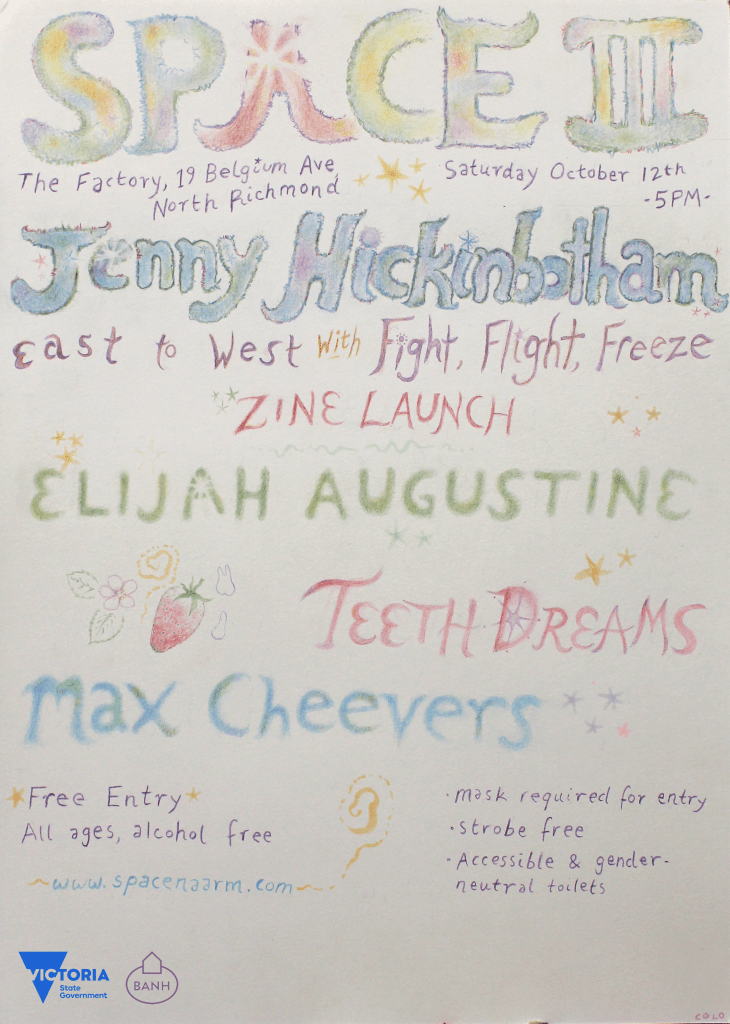 SPACE III
The Factory, 19 Belgium Ave,
North Richmond
Saturday October 12th
-5PM-
Jenny Hickinbotham
East to West with Fight, Flight, Freeze
ZINE LAUNCH
ELIJAH AUGUSTINE
TEETH DREAMS
Max Cheevers
Free Entry
All ages, alcohol free
www.spacenaarm.com
· mask required for entry
· strobe free
· Accessible & gender-
neutral toilets
VICTORIA
State
Government
BANH
COLO